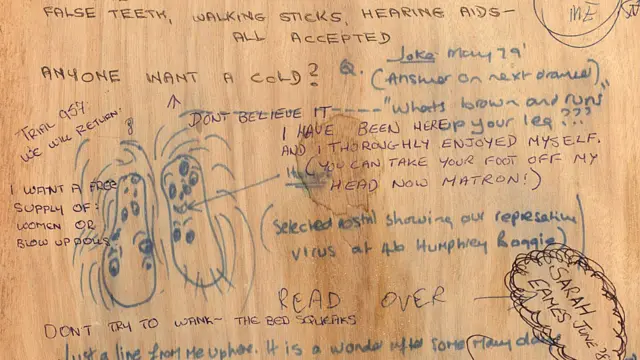 FALSE TEETH, WALKING STICKS, HEARING AIDS-
ALL ACCEPTED
ME
ANYONE WANT A COLD?
Q. Joke May 79'
(Answer on next drawer)
TRIAL 957.
WE WILL RETURN.
DONT BELIEVE IT----
"Whats brown and runs
up your leg???
I HAVE BEEN HERE
AND I THOROUGHLY ENJOYED MYSELF.
(YOU CAN TAKE YOUR FOOT OFF MY
HEAD NOW MATRON!)
I WANT A FREE
SUPPLY OF:
WOMEN OR
BLOW UP DOLLS
(Selected postal showing our representive
virus at 4b Humphrey Boggie)
READ OVER
SARAH
EAMES
JUNE
DON'T TRY TO WANK~ THE BED SQUEAKS
Just a line from me uphere. It is a wonder after some many